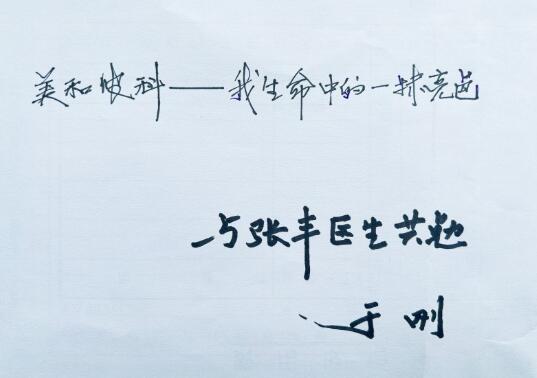 美和皮科——我生命中的一抹亮色
与张丰医生共勉
于刚